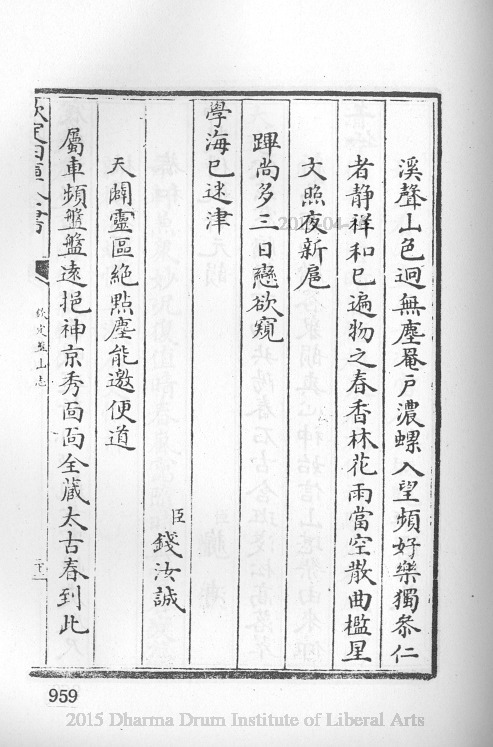 溪聲山色迥無塵罨戸濃螺入望頻好樂獨叅仁
者静祥和已遍物之春香林花雨當空散曲檻星
文照夜新扈
蹕尚多三日戀欲窺
學海已迷津
臣錢汝誠
天闢靈區絶點塵能邀便道
屬車頻盤盤遠挹神京秀面面全蔵太古春到此
欽定四庫全書
欽定盤山志
959
2015 Dharma Drum Institute of Liberal Arts